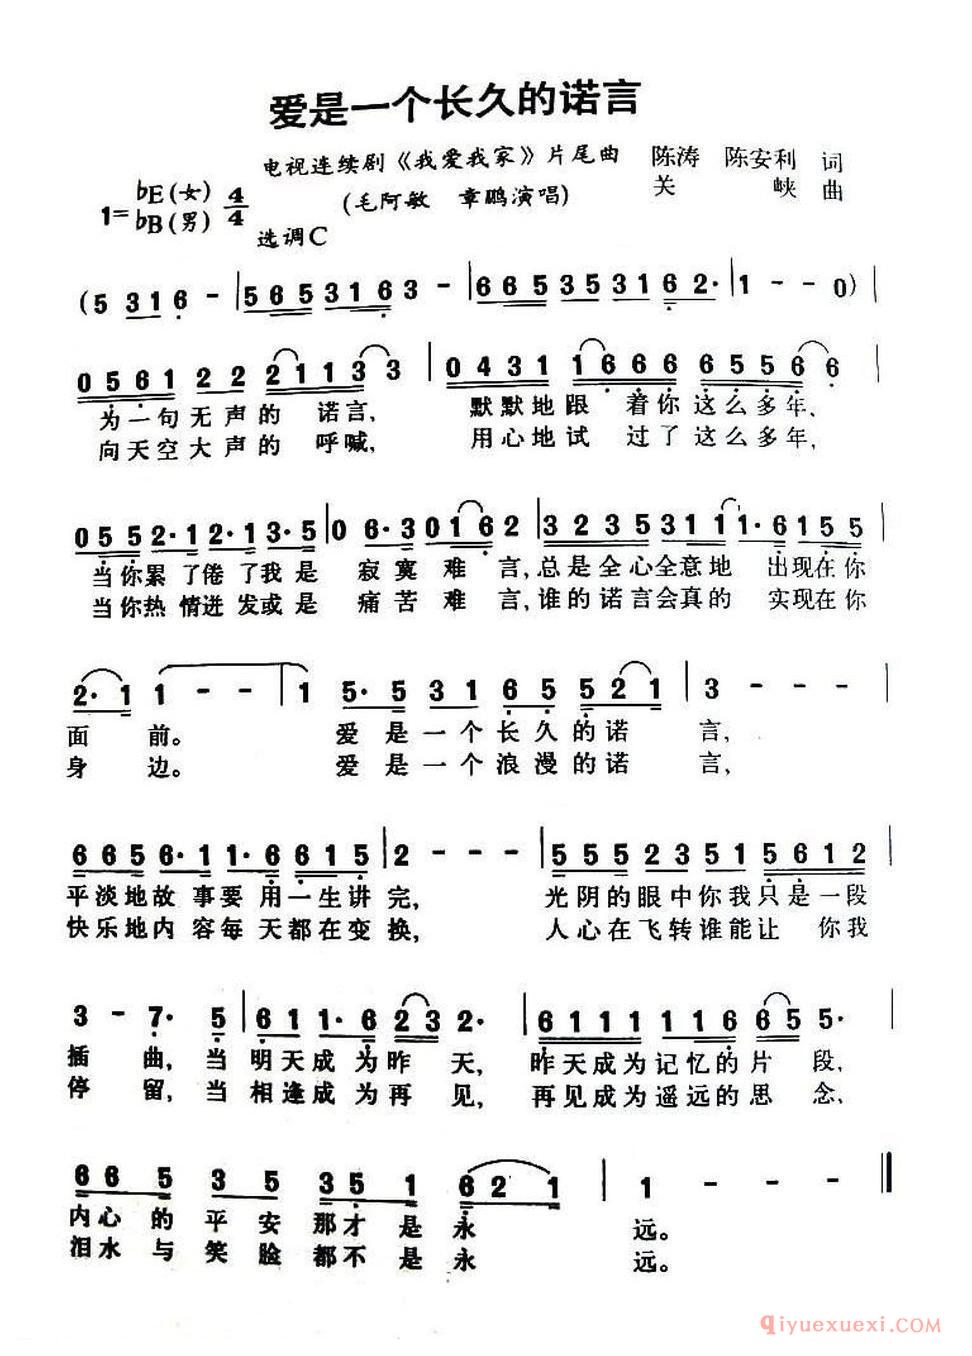 爱是一个长久的诺言
电视连续剧《我爱我家》片尾曲 陈涛 陈安利 词
1=♭E(女) ♭B(男) 4/4 (毛阿敏 章鹏演唱) 关 峡 曲
选调C
(5 316 - | 5653163 - | 665353162· | 1 - - 0) |
0561 22 21133 | 0431 1666 65566 |
为一句无声的 诺言, 默默地跟 着你这么多年、
向天空大声的 呼喊, 用心地试 过了这么多年,
0552·12·13·5 | 06·30162 | 32353111·6155 |
当你累了倦了我是 寂寞难 言,总是全心全意地 出现在你
当你热情迸发或是 痛苦难 言,谁的诺言会真的 实现在你
2·1 1 - - | 1 5·5 31 65 521 | 3 - - - |
面 前。 爱是一个长久的诺 言,
身 边。 爱是一个浪漫的诺 言,
6656·11·6615 | 2 - - - | 55523515612 |
平淡地故事要用一生讲 完, 光阴的眼中你我只是一段
快乐地内容每天都在变 换, 人心在飞转谁能让 你我
3 - 7· 5 | 611·6232· | 6111116655· |
插 曲, 当 明天成为昨 天, 昨天成为记忆的片 段,
停 留, 当 相逢成为再 见, 再见成为遥远的思 念,
665 35 351 621 | 1 - - - ‖
内心的平安那才是永 远。
泪水与笑脸都不是永 远。
qiyuexuexi.COM